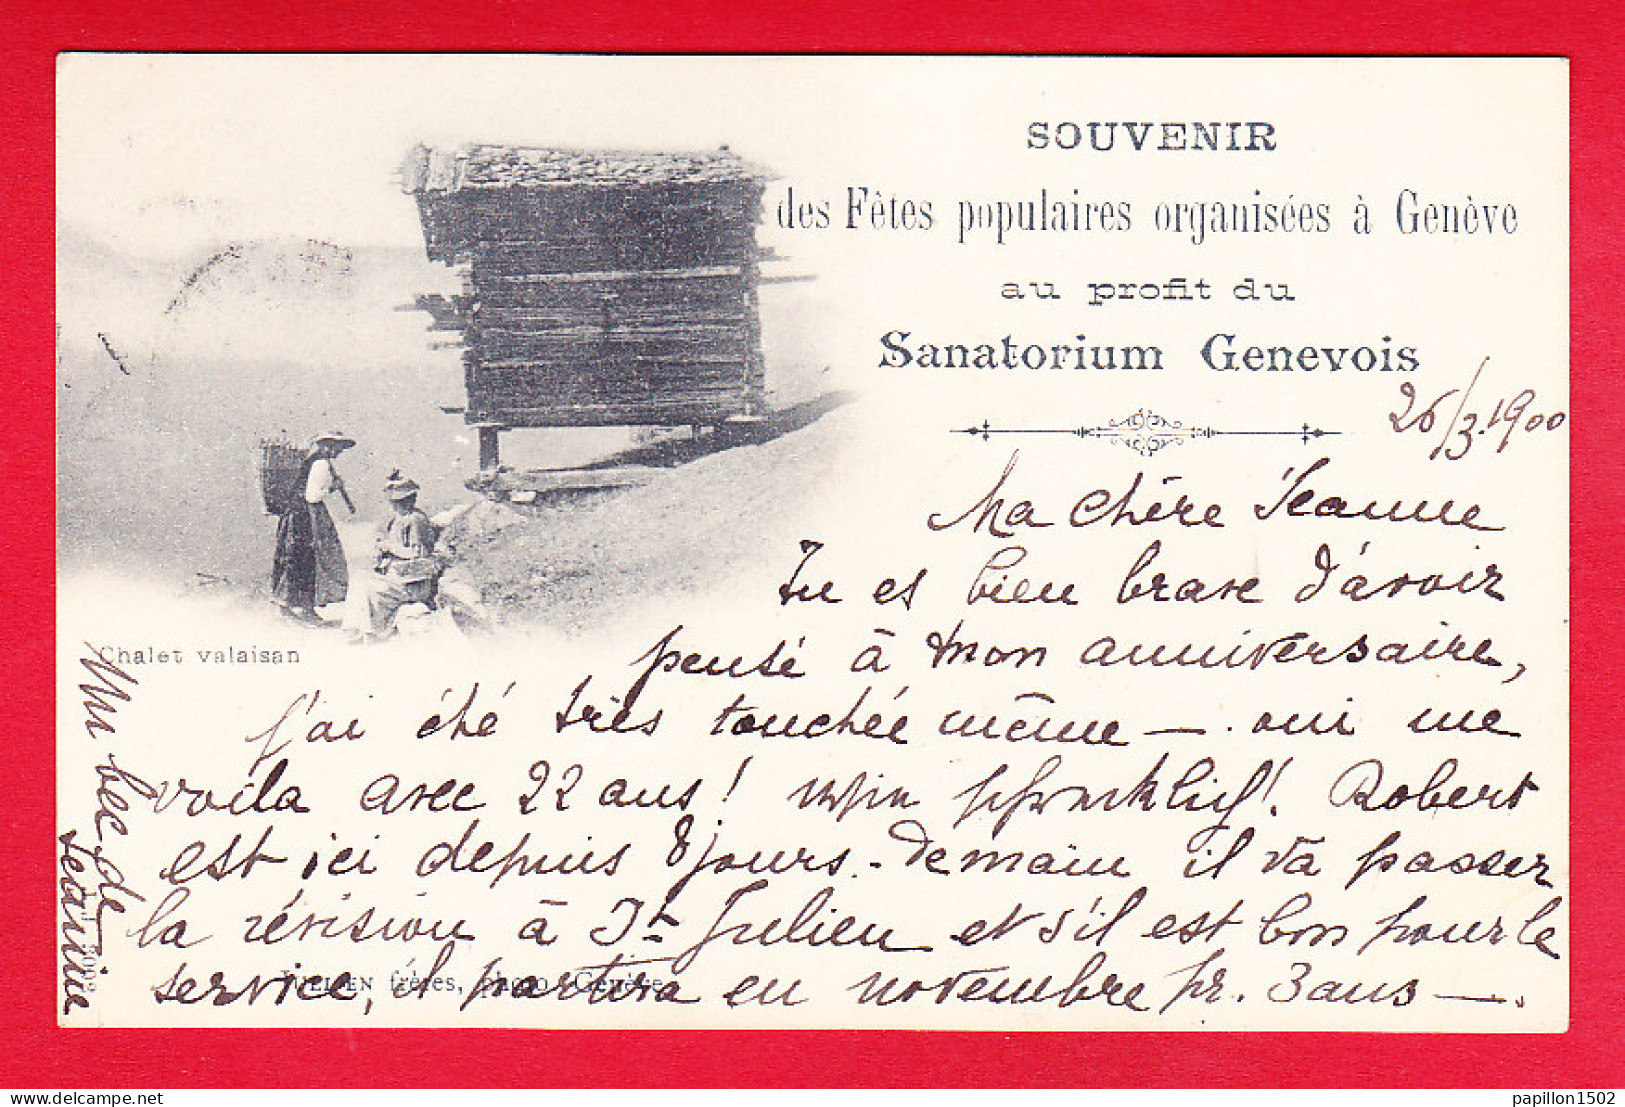 SOUVENIR
des Fêtes populaires organisées à Genève
au profit du
Sanatorium Genevois
26/3.1900
Ma chère Jeanne
Tu es bien brave d'avoir
pensé à mon anniversaire,
j'ai été très touchée même — oui me
voila avec 22 ans! Robert
est ici depuis 8 jours. - demain il va passer
la révision à St Julien et s'il est bon pour le
service, il partira en novembre pr. 3 ans —.
Chalet valaisan
Un bec de
Jeanne
JULLIEN frères, photo. Genève
papillon1502